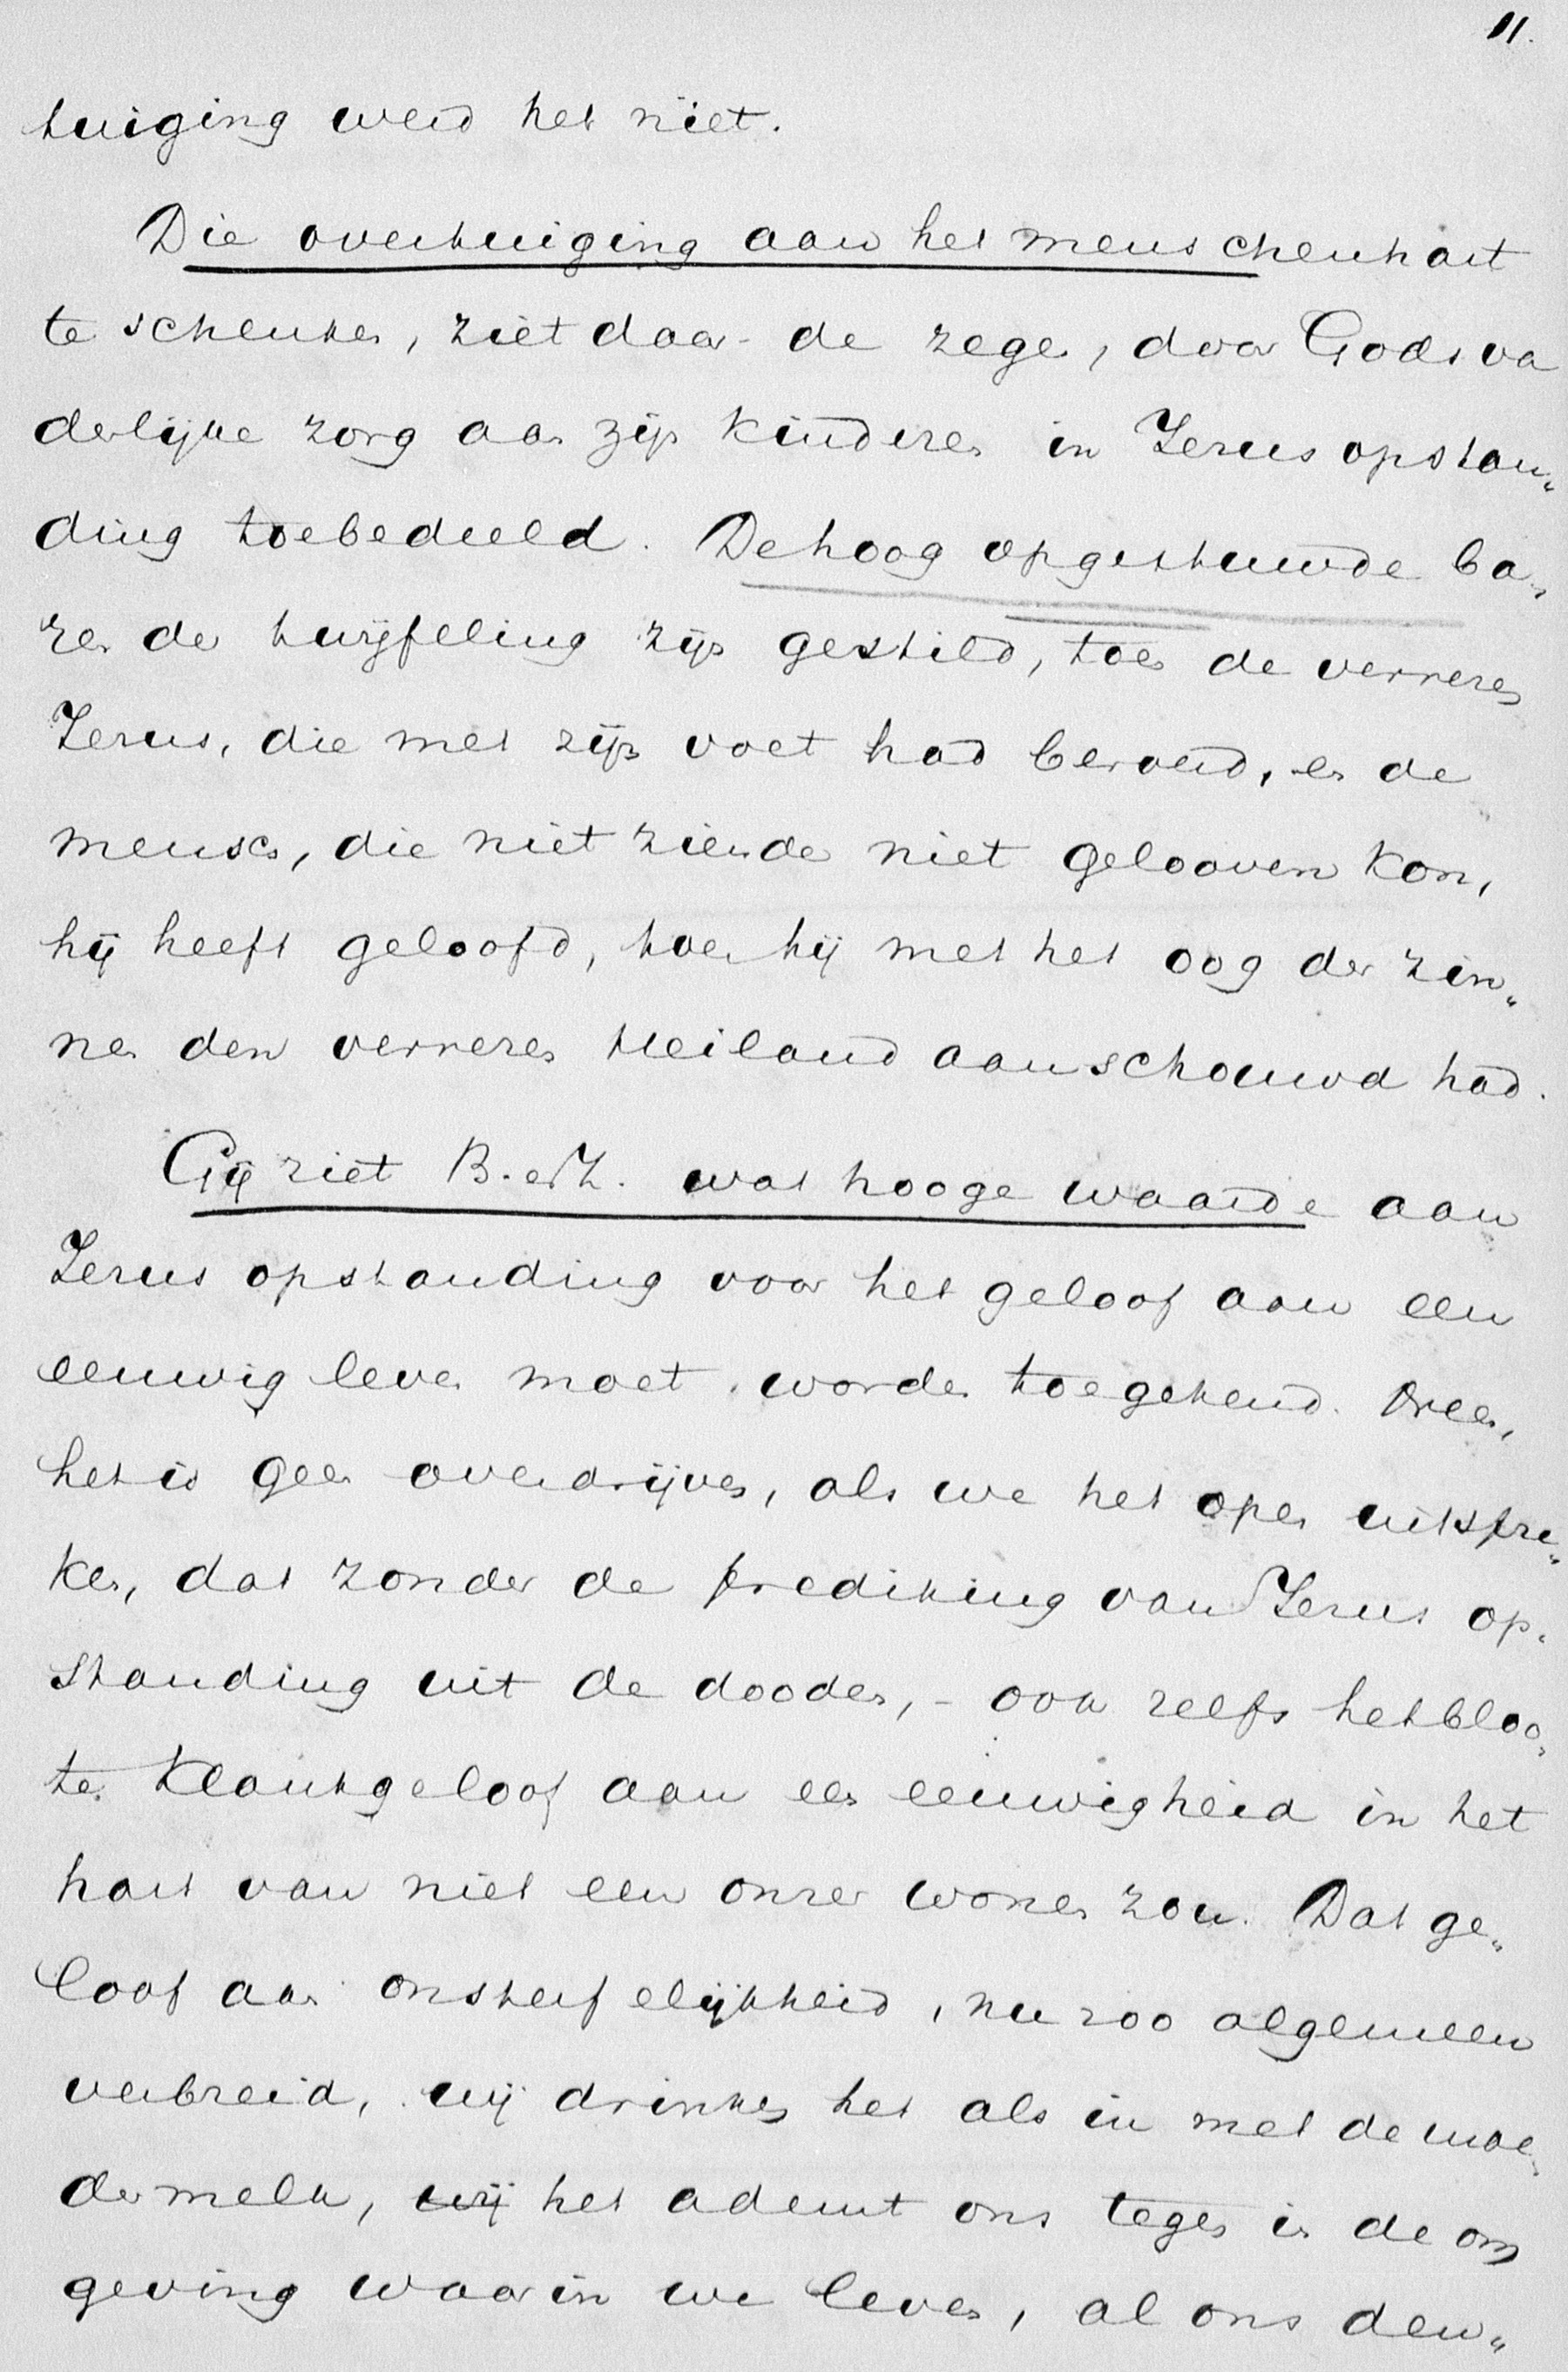 11.
tuiging werd het niet.
Die overtuiging aan het menschenhart
te schenken, ziet daar de zege, door Gods va
derlijke zorg aan zijn kinderen in Jezus opstan„
ding toebedeeld. De hoog opgestuwde ba„
ren der twijfeling zijn gestild, toen de verrezen
Jezus, die met zijn voet had beroerd, en de
mensch, die niet ziende niet gelooven kon,
hij heeft geloofd, toen hij met het oog der zin„
nen den verrezen Heiland aanschouwd had.
Gij ziet B. en Z. wat hooge waarde aan
Jezus opstanding voor het geloof aan een
eeuwig leven moet worden toegekend. Neen,
het is geen overdrijven, als we het open uitspre„
ken, dat zonder de prediking van Jezus op„
standing uit de dooden, – ook zelfs het bloo„
te klankgeloof aan een eeuwigheid in het
hart van niet een onzer wonen zou. Dat ge„
loof aan onsterfelijkheid, nu zoo algemeen
verbreid, wij drinken het als in met de moe„
dermelk, wij het ademt ons tegen in de om
geving waarin we leven, al ons den„